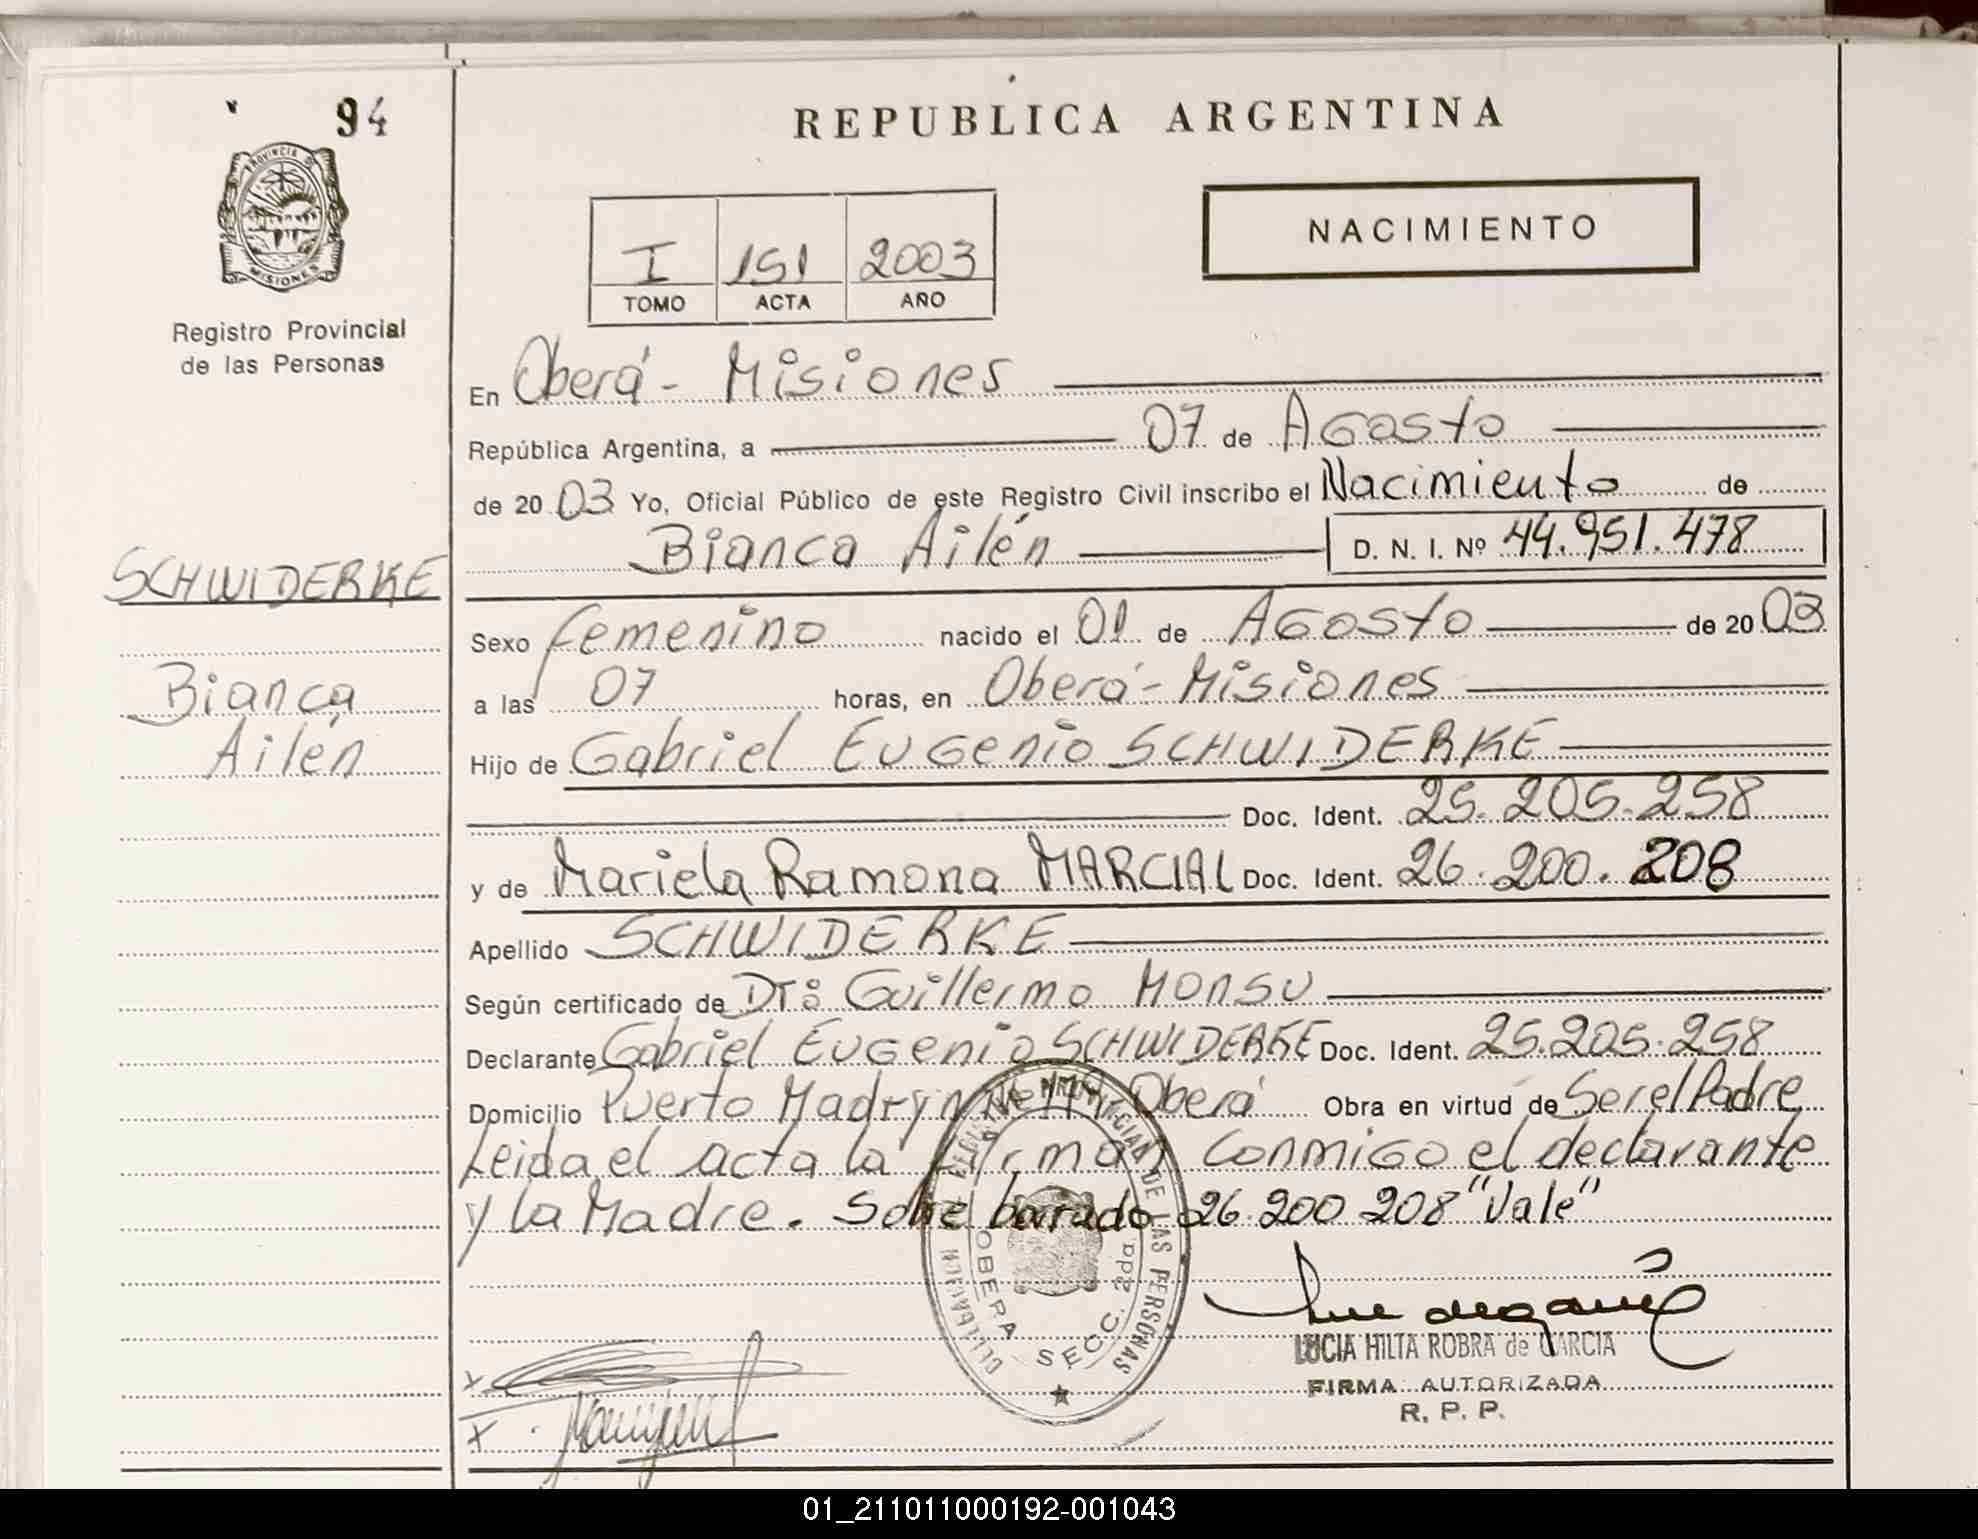 94
PROVINCIA DE
MISIONES
Registro Provincial
de las Personas
SCHWIDERKE
Bianca
Ailén
REPUBLICA ARGENTINA
NACIMIENTO
I 151 2003
TOMO ACTA AÑO
En Oberá - Misiones
República Argentina, a 07 de Agosto
de 20 03 Yo, Oficial Público de este Registro Civil inscribo el Nacimiento de
Bianca Ailén D. N. I. Nº 44.951.478
Sexo femenino nacido el 01 de Agosto de 20 03
a las 07 horas, en Oberá - Misiones
Hijo de Gabriel Eugenio SCHWIDERKE
Doc. Ident. 25.205.258
y de Mariela Ramona MARCIAL Doc. Ident. 26.200.208
Apellido SCHWIDERKE
Según certificado de Dr: Guillermo Monsu
Declarante Gabriel Eugenio SCHWIDERKE Doc. Ident. 25.205.258
Domicilio Puerto Madryn Oberá Obra en virtud de Ser el Padre
Leida el acta la firman conmigo el declarante
y la Madre. Sobre borrado 26.200 208 "Vale"
DELEGACION REGISTRO PROVINCIAL DE LAS PERSONAS
OBERA SECC. 2da
LUCIA HILTA ROBRA de GARCIA
FIRMA AUTORIZADA
R. P. P.
x
x
01_211011000192-001043